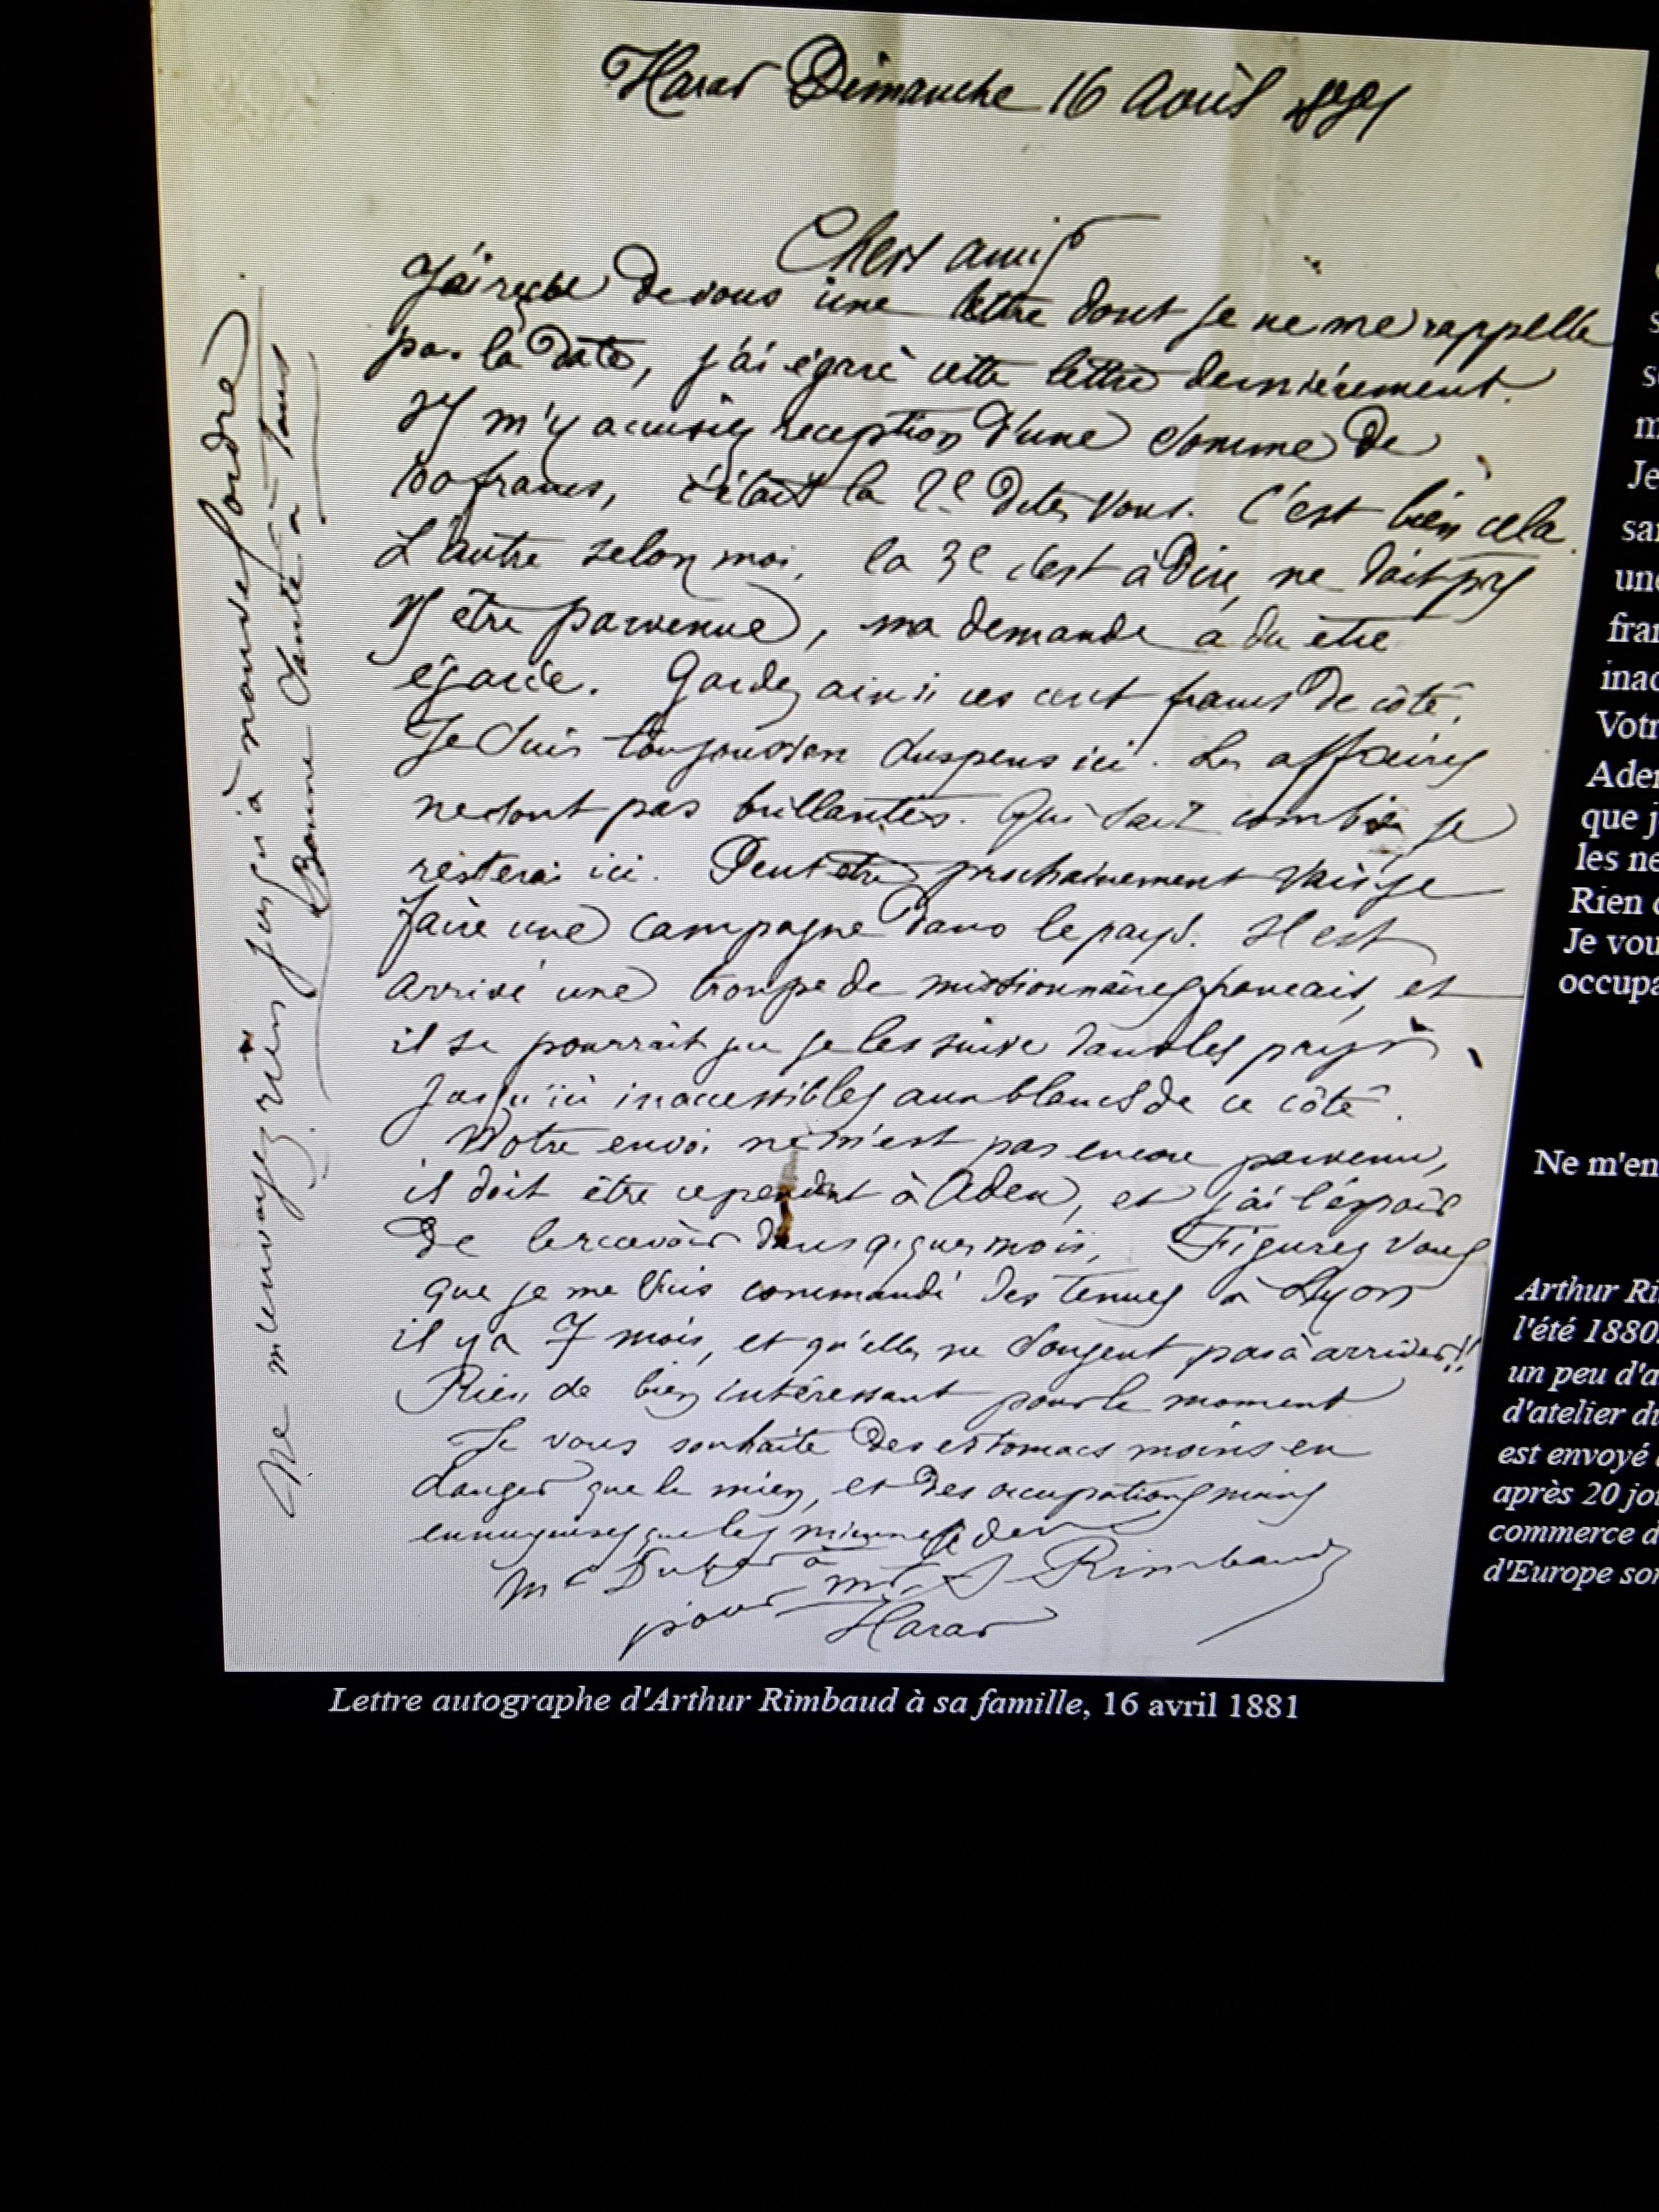 Harar Dimanche 16 Avril 1881
Chers amis
J'ai reçu de vous une lettre dont je ne me rappelle
pas la date, j'ai égaré cette lettre dernièrement.
Vs m'y accusiez reception d'une somme de
100 francs, c'était la 2e dites vous. C'est bien cela.
L'autre selon moi, la 3e c'est à dire, ne doit pas
Vs être parvenue, ma demande a du etre
égarée. Gardez ainsi ces cent francs de côté.
Je suis toujours en suspens ici. Les affaires
ne sont pas brillantes. Qui sait combien je
resterai ici. Peut etre prochainement vais je
faire une campagne dans le pays. Il est
arrivé une troupe de missionnaires francais, et
il se pourrait que je les suive dans les pays
jusqu'ici inaccessibles aux blancs de ce côté.
Votre envoi ne m'est pas encore parvenu,
il doit être cependant à Aden, et j'ai l'espoir
de le recevoir dans qques mois. Figurez vous
que je me suis commandé des tenues à Lyon
il y a 7 mois, et qu'elles ne songent pas à arriver!!
Rien de bien intéressant pour le moment
Je vous souhaite des estomacs moins en
danger que le mien, et des occupations moins
ennuyeuses que les miennes
Mr Dubar à Aden
pour Mr Rimbaud
Harar
Ne m'envoyez rien jusqu'à nouvel ordre.
Bonne Santé à tous
Lettre autographe d'Arthur Rimbaud à sa famille, 16 avril 1881
Je
fran
Votr
Aden
que j
les ne
Rien
Je vou
occupa
Ne m'en
Arthur Ri
l'été 1880
un peu d'a
d'atelier du
est envoyé
après 20 jo
commerce d
d'Europe so